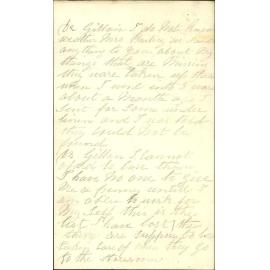 Dr Gillain I do not know
weather Mrs said
anything to you about my
things that are missing
they ware taken up there
when I went and I ware
about a month ago
sent for some under
linen and I was told
they could not be
found
Dr Gillen I cannot
afford to lose them
I have no one to give
me a penny untill I
am able to work for
my self this is the
list I have lost they
there are suppose to be
taken care of when they go
to the